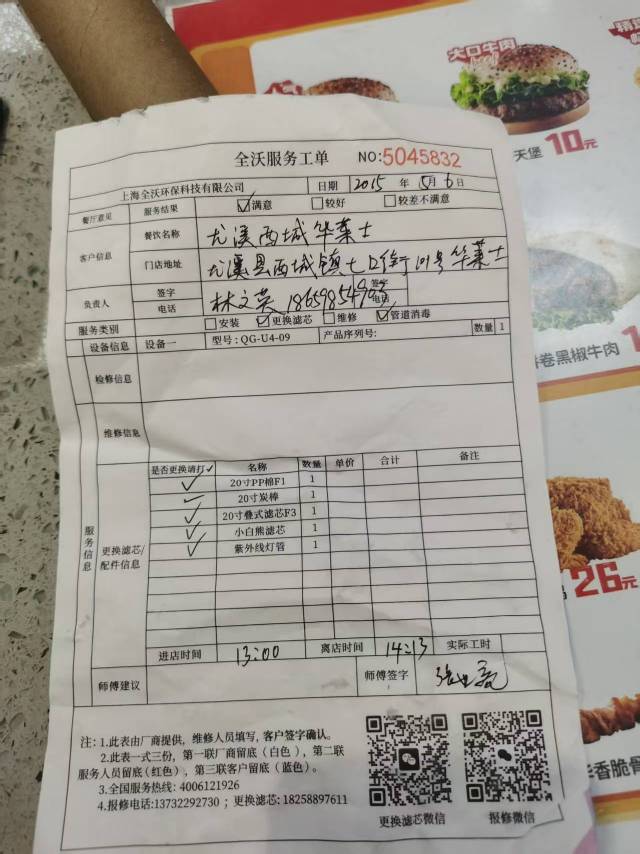 全沃服务工单 NO:5045832
上海全沃环保科技有限公司 日期 2015 年 5月 6 日
餐厅意见 服务结果 ☑满意 □较好 □较差不满意
客户信息 餐饮名称 尤溪西城华莱士
门店地址 尤溪县西城镇七口街101号华莱士
负责人 签字 电话 林文英 签字 电话
服务类别 □安装 ☑更换滤芯 □维修 ☑管道消毒
设备信息 设备一 型号:QG-U4-09 产品序列号: 数量 1
检修信息
维修信息
服务信息 更换滤芯/配件信息
是否更换请打✓ 名称 数量 单价 合计 备注
✓ 20寸PP棉F1 1
✓ 20寸炭棒 1
✓ 20寸叠式滤芯F3 1
✓ 小白熊滤芯 1
✓ 紫外线灯管 1
进店时间 13:00 离店时间 14:13 实际工时
师傅建议 师傅签字
注: 1.此表由厂商提供, 维修人员填写, 客户签字确认。
2.此表一式三份, 第一联厂商留底 (白色), 第二联
服务人员留底(红色), 第三联客户留底 (蓝色)。
3.全国服务热线: 4006121926
4.报修电话:13732292730 ; 更换滤芯: 18258897611
更换滤芯微信 报修微信
大口牛肉
天堡 10元
卷黑椒牛肉
26元
香脆骨